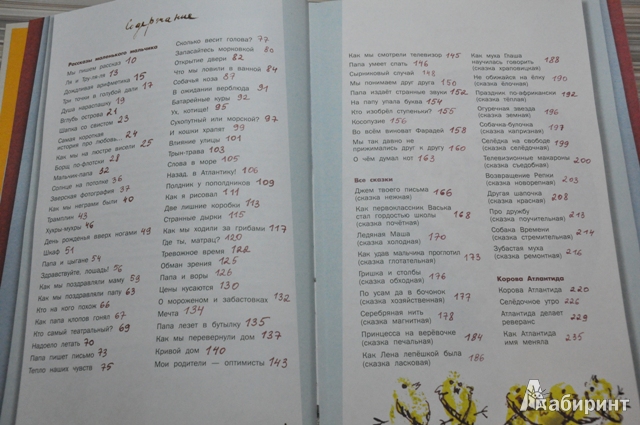 Содержание
Рассказы маленького мальчика
Мы пишем рассказ 10
Ля и Тру-ля-ля 13
Дождливая арифметика 15
Три точки в голубой дали 17
Душа нараспашку 19
Вглубь острова 21
Шапка со свистом 23
Самая короткая
история про любовь... 24
Как мы на люстре висели 25
Борщ по-флотски 28
Мальчик-папа 32
Солнце на потолке 36
Зверская фотография 37
Как мы неграми были 40
Трамплин 43
Хухры-мухры 46
День рожденья вверх ногами 49
Шкаф 51
Папа и цыгане 54
Здравствуйте, лошадь! 56
Как мы поздравляли маму 59
Как мы поздравляли папу 63
Кто на кого похож 66
Как папа клопов гонял 67
Кто самый театральный? 69
Надоело летать 70
Папа пишет письмо 73
Тепло наших чувств 75
Сколько весит голова? 77
Запасайтесь морковкой 80
Открытие двери 82
Что мы ловили в ванной 84
Собачья коза 87
В ожидании верблюда 91
Батарейные куры 92
Ух, котище! 95
Сухопутный или морской? 97
И кошки храпят 99
Влияние улицы 101
Трын-трава 103
Слова в море 105
Назад, в Атлантику! 106
Полдник у пополдников 109
Как я рисовал 111
Две лишние коробки 113
Странные дырки 115
Как мы ходили за грибами 117
Где ты, матрац? 120
Тревожное время 122
Обман зрения 125
Папа и воры 126
Цены кусаются 130
О мороженом и забастовках 132
Мечта 134
Папа лезет в бутылку 135
Как мы перевернули дом 137
Кривой дом 140
Мои родители — оптимисты 143
Как мы смотрели телевизор 145
Папа умеет спать 146
Сырниковый случай 148
Мы понимаем друг друга 150
Папа издаёт странные звуки 152
На папу упала буква 154
Кто изобрёл ступеньки? 155
Косопузие 156
Во всём виноват Фарадей 158
Мы так давно не
прижимались друг к другу 160
О чём думал кот 163
Все сказки
Джем твоего письма 166
(сказка нежная)
Как первоклассник Васька
стал гордостью школы 168
(сказка почётная)
Ледяная Маша 170
(сказка холодная)
Как удав мальчика проглотил 173
(сказка глотательная)
Гришка и столбы 176
(сказка обходная)
По усам да в бочонок 177
(сказка хозяйственная)
Серебряная нить 178
(сказка магнитная)
Принцесса на верёвочке 184
(сказка печальная)
Как Лена лепёшкой была 186
(сказка ласковая)
Как муха Глаша
научилась говорить 188
(сказка краповицкая)
Не обижайся на ёлку 190
(сказка ёлочная)
Праздник по-африкански 192
(сказка тёплая)
Огуречная звезда 196
(сказка земная)
Собачка-булочка 197
(сказка капризная)
Селёдка на свободе 199
(сказка селёдочная)
Телевизионные макароны 200
(сказка съедобная)
Возвращение Репки 203
(сказка новорепная)
Другая шапочка 208
(сказка красная)
Про дружбу 213
(сказка поучительная)
Собака Времени 214
(сказка стремительная)
Зубастая муха 216
(сказка ремонтная)
Корова Атлантида
Корова Атлантида 220
Селёдочное утро 226
Атлантида делает
реверанс 229
Как Атлантида
имя меняла 235
Лабиринт